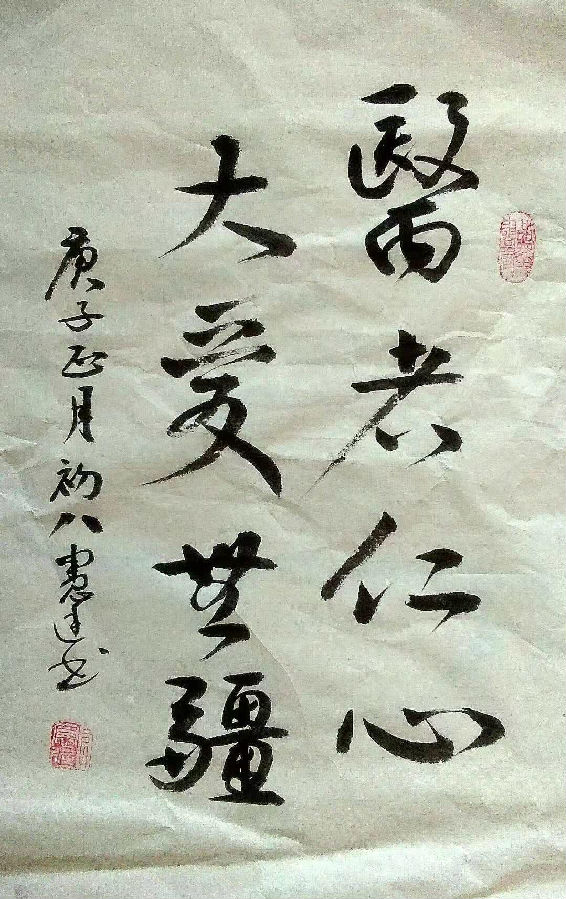 醫者仁心
大愛無疆
庚子正月初八憲達書